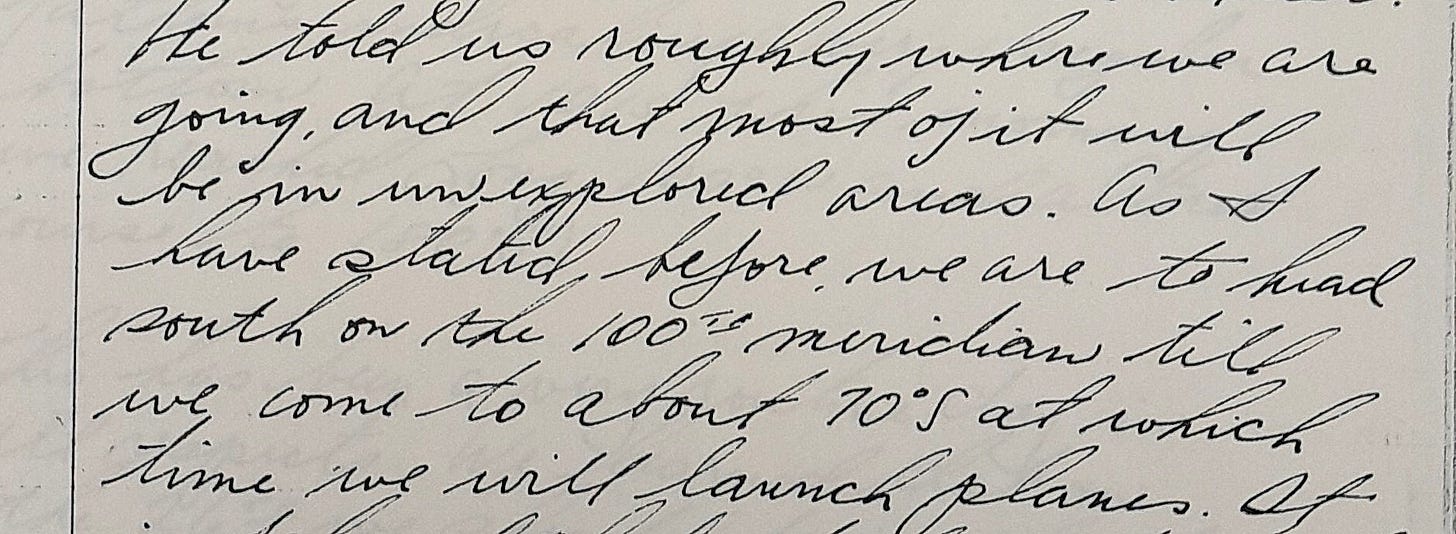 He told us roughly where we are
going, and that most of it will
be in unexplored areas. As I
have stated before, we are to head
south on the 100th meridian till
we come to about 70°S at which
time we will launch planes. It